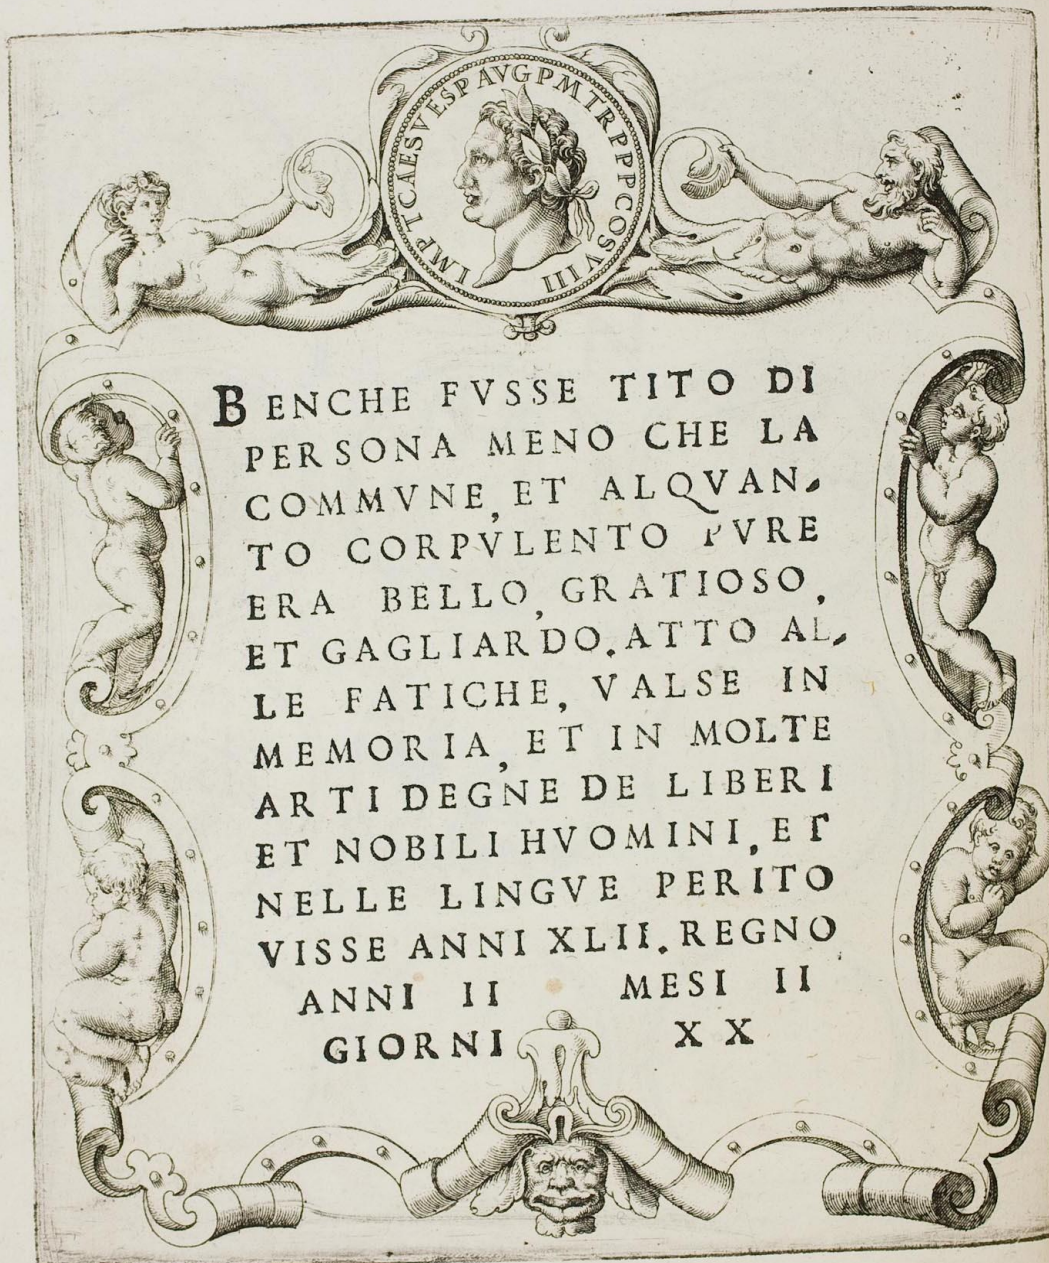 I.MP T CAES VESP AVG P M TR P P P COS VIII
BENCHE FVSSE TITO DI
PERSONA MENO CHE LA
COMMVNE, ET ALQVAN-
TO CORPVLENTO PVRE
ERA BELLO, GRATIOSO,
ET GAGLIARDO. ATTO AL-
LE FATICHE, VALSE IN
MEMORIA, ET IN MOLTE
ARTI DEGNE DE LIBERI
ET NOBILI HVOMINI, ET
NELLE LINGVE PERITO
VISSE ANNI XLII. REGNO
ANNI II MESI II
GIORNI XX